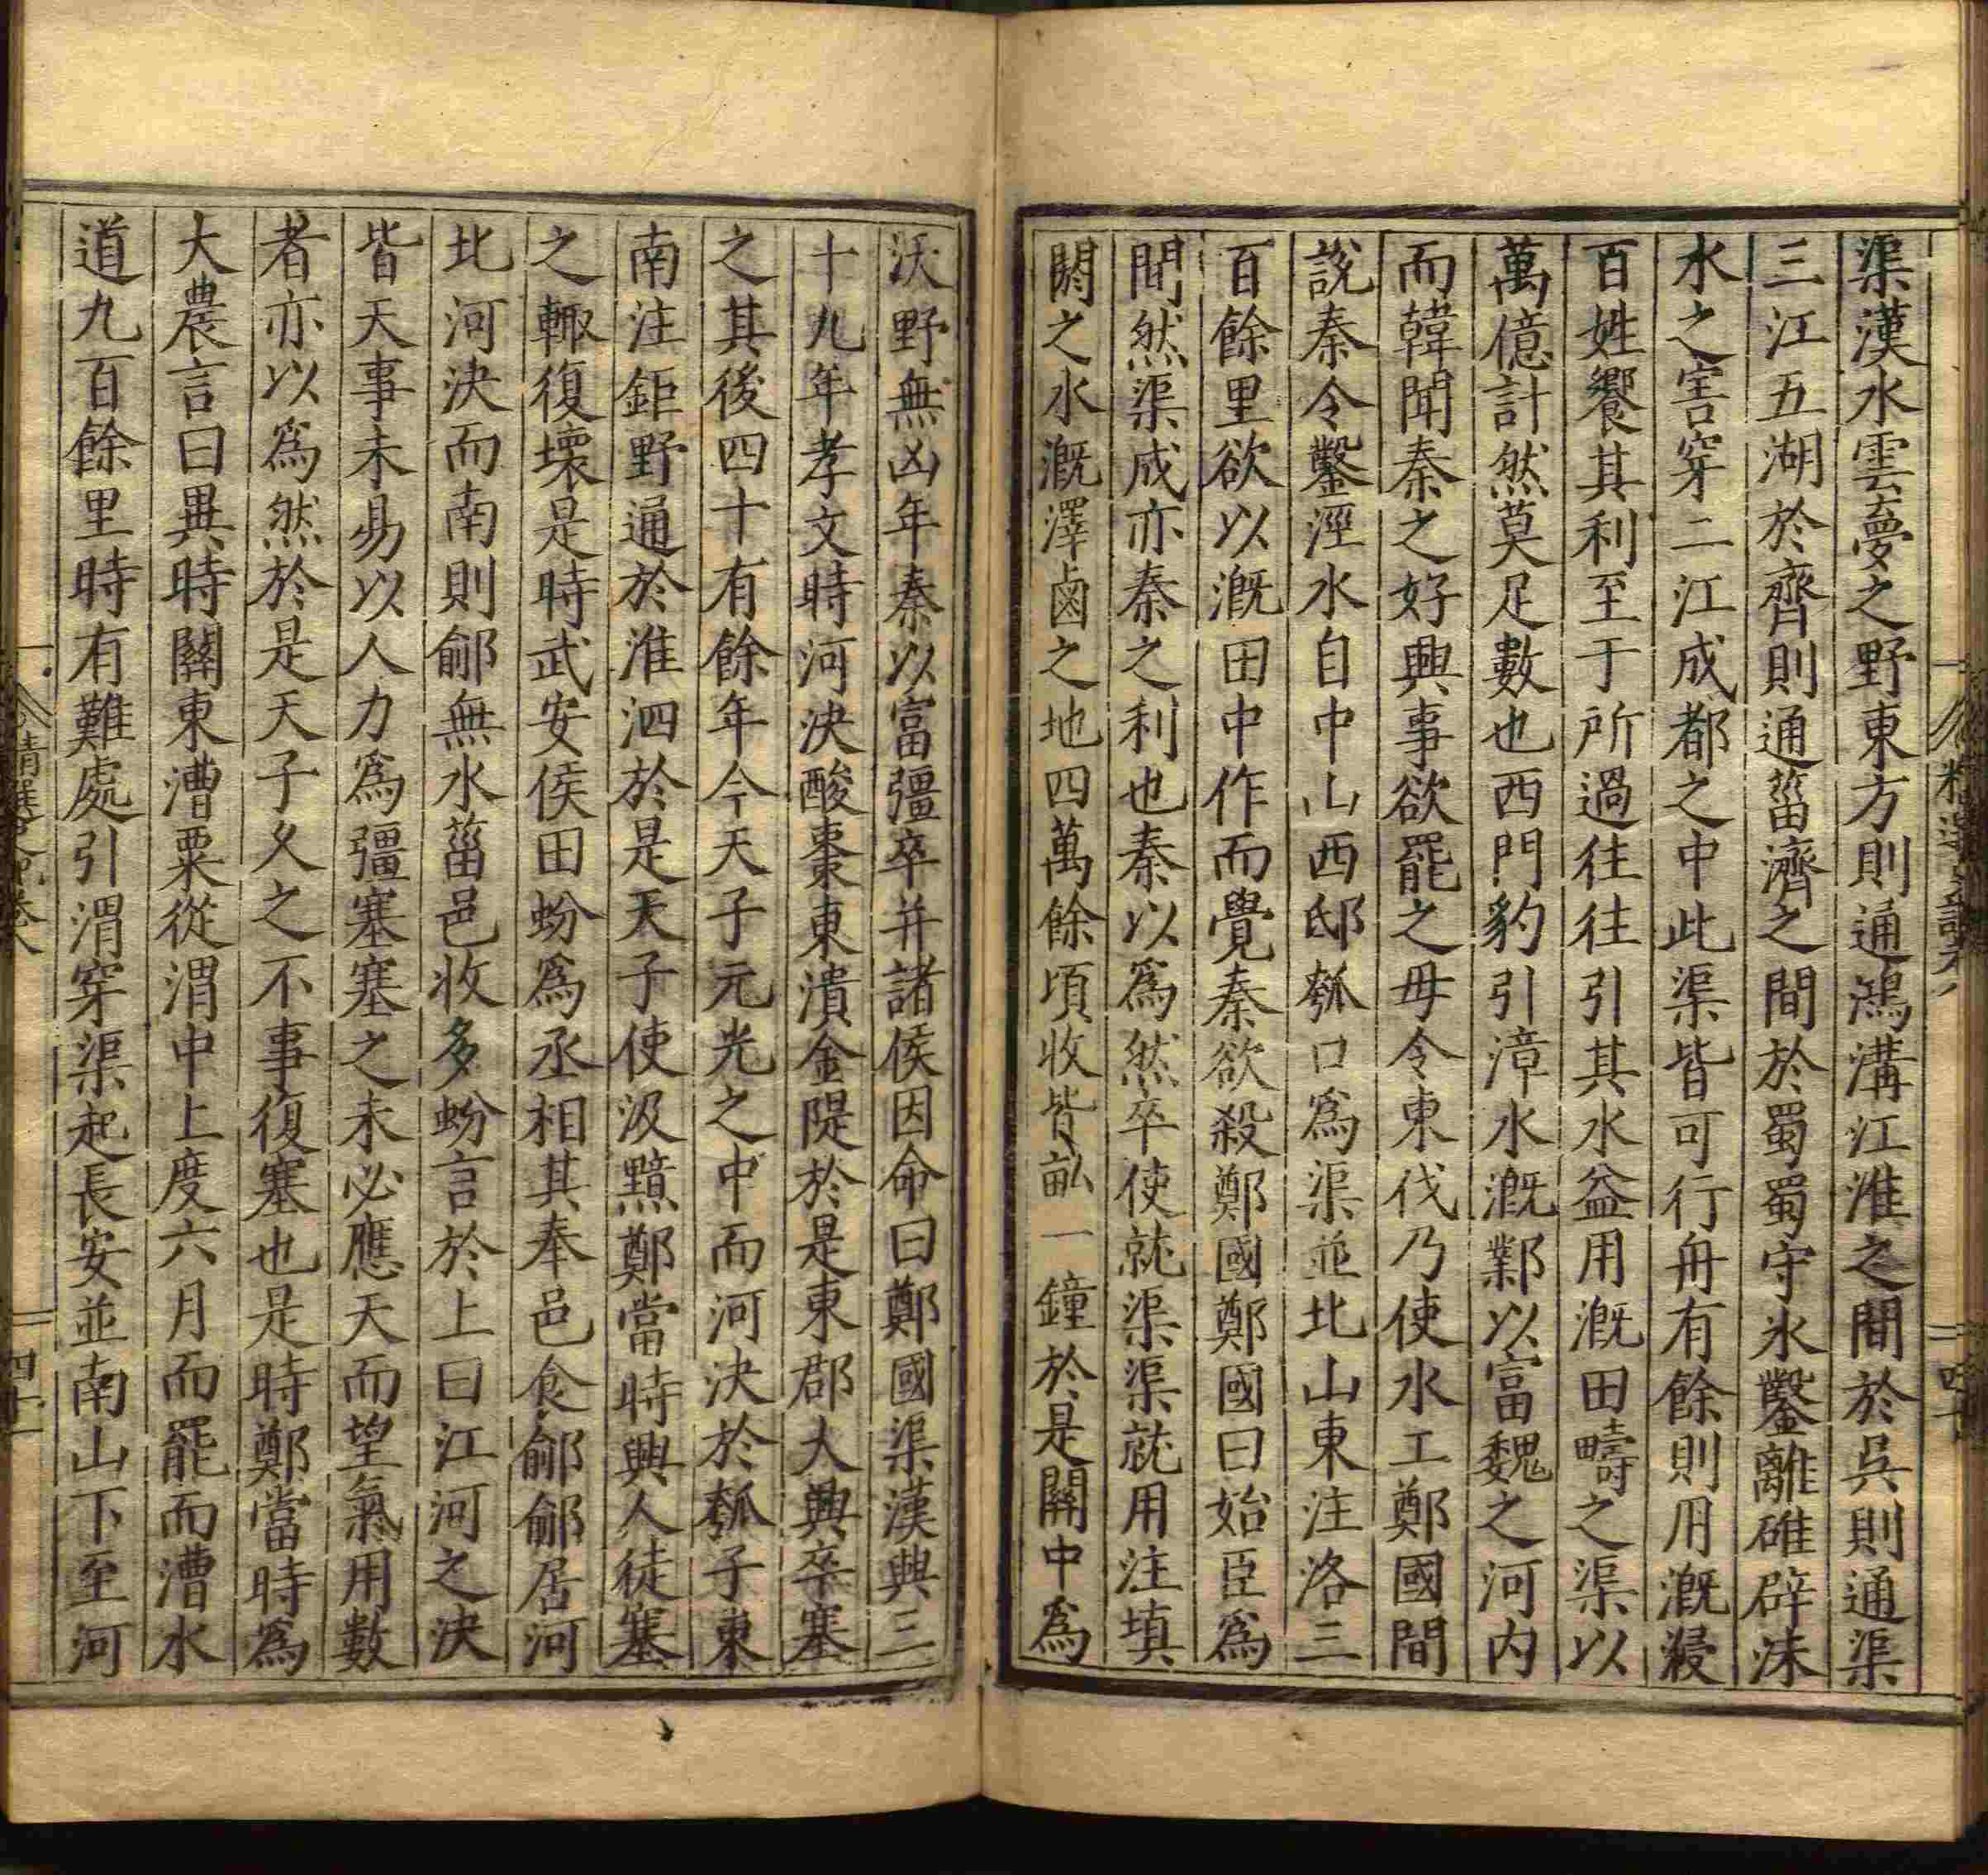 渠漢水雲夢之野東方則通鴻溝江淮之間於吳則通渠
三江五湖於齊則通菑濟之間於蜀蜀守氷鑿離碓辟沫
水之害穿二江成都之中此渠皆可行舟有餘則用漑浸
百姓饗其利至于所過往往引其水益用漑田疇之渠以
萬億計然莫足數也西門豹引漳水漑鄴以富魏之河内
而韓聞秦之好興事欲罷之毋令東伐乃使水工鄭國間
說秦令鑿涇水自中山西邸瓠口爲渠並北山東注洛三
百餘里欲以漑田中作而覺秦欲殺鄭國鄭國曰始臣爲
間然渠成亦秦之利也秦以爲然卒使就渠渠就用注填
閼之水漑澤鹵之地四萬餘頃收皆畝一鐘於是關中爲
沃野無凶年秦以富彊卒并諸侯因命曰鄭國渠漢興三
十九年孝文時河決酸棗東潰金隄於是東郡大興卒塞
之其後四十有餘年今天子元光之中而河決於瓠子東
南注鉅野通於淮泗於是天子使汲黯鄭當時興人徒塞
之輙復壞是時武安侯田蚡爲丞相其奉邑食鄃鄃居河
北河決而南則鄃無水菑邑收多蚡言於上曰江河之決
皆天事未易以人力爲彊塞塞之未必應天而望氣用數
者亦以爲然於是天子久之不事復塞也是時鄭當時爲
大農言曰異時關東漕粟從渭中上度六月而罷而漕水
道九百餘里時有難處引渭穿渠起長安並南山下至河